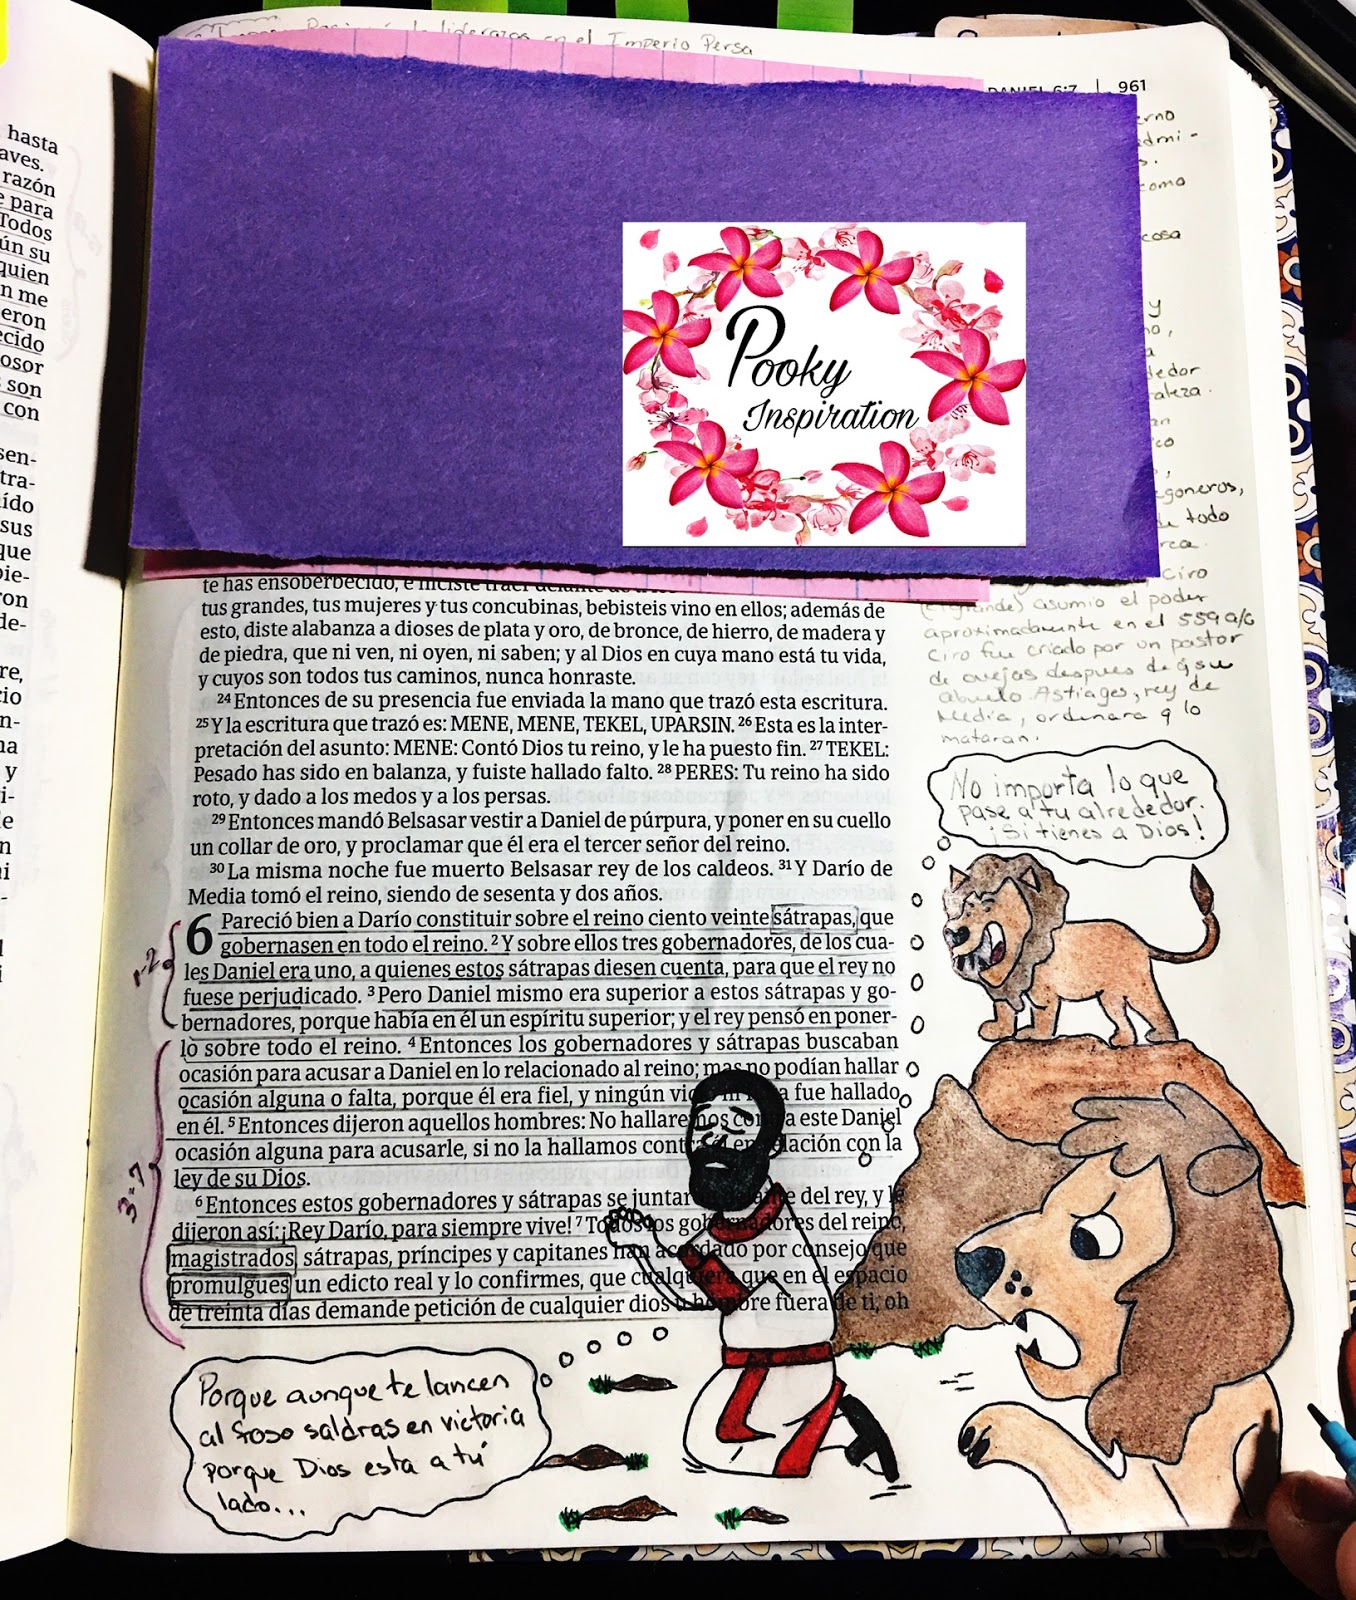 en el Imperio Persa
961
hasta
aves.
razón
para
Todos
ún su
quien
n me
eron
ecido
osor
son
con
sen-
tra-
ído
sus
que
pie-
ron
de-
re,
cio
n-
na
y
i-
le
n
ni
Pooky
Inspiration
erno
admi-
como
cosa
y
dedor
raleza.
goneros,
de todo
Ciro
asumio el poder
aproximadamente en el 559 a/C
Ciro fue criado por un pastor
de ovejas despues de q su
abuelo Astiages, rey de
Media, ordenara q lo
mataran.
te has ensoberbecido, e hiciste traer delante de
tus grandes, tus mujeres y tus concubinas, bebisteis vino en ellos; además de
esto, diste alabanza a dioses de plata y oro, de bronce, de hierro, de madera y
de piedra, que ni ven, ni oyen, ni saben; y al Dios en cuya mano está tu vida,
y cuyos son todos tus caminos, nunca honraste.
24 Entonces de su presencia fue enviada la mano que trazó esta escritura.
25 Y la escritura que trazó es: MENE, MENE, TEKEL, UPARSIN. 26 Esta es la inter-
pretación del asunto: MENE: Contó Dios tu reino, y le ha puesto fin. 27 TEKEL:
Pesado has sido en balanza, y fuiste hallado falto. 28 PERES: Tu reino ha sido
roto, y dado a los medos y a los persas.
29 Entonces mandó Belsasar vestir a Daniel de púrpura, y poner en su cuello
un collar de oro, y proclamar que él era el tercer señor del reino.
30 La misma noche fue muerto Belsasar rey de los caldeos. 31 Y Darío de
Media tomó el reino, siendo de sesenta y dos años.
6 Pareció bien a Darío constituir sobre el reino ciento veinte sátrapas, que
gobernasen en todo el reino. 2 Y sobre ellos tres gobernadores, de los cua-
les Daniel era uno, a quienes estos sátrapas diesen cuenta, para que el rey no
fuese perjudicado. 3 Pero Daniel mismo era superior a estos sátrapas y go-
bernadores, porque había en él un espíritu superior; y el rey pensó en poner-
lo sobre todo el reino. 4 Entonces los gobernadores y sátrapas buscaban
ocasión para acusar a Daniel en lo relacionado al reino; mas no podían hallar
ocasión alguna o falta, porque él era fiel, y ningún vicio ni falta fue hallado
en él. 5 Entonces dijeron aquellos hombres: No hallaremos contra este Daniel
ocasión alguna para acusarle, si no la hallamos contra él en relación con la
ley de su Dios.
6 Entonces estos gobernadores y sátrapas se juntaron delante del rey, y le
dijeron así: ¡Rey Darío, para siempre vive! 7 Todos los gobernadores del reino,
magistrados, sátrapas, príncipes y capitanes han acordado por consejo que
promulgues un edicto real y lo confirmes, que cualquiera que en el espacio
de treinta días demande petición de cualquier dios u hombre fuera de ti, oh
1-2
3-7
No importa lo que
pase a tu alrededor.
¡Si tienes a Dios!
Porque aunque te lancen
al foso saldras en victoria
porque Dios esta a tú
lado...